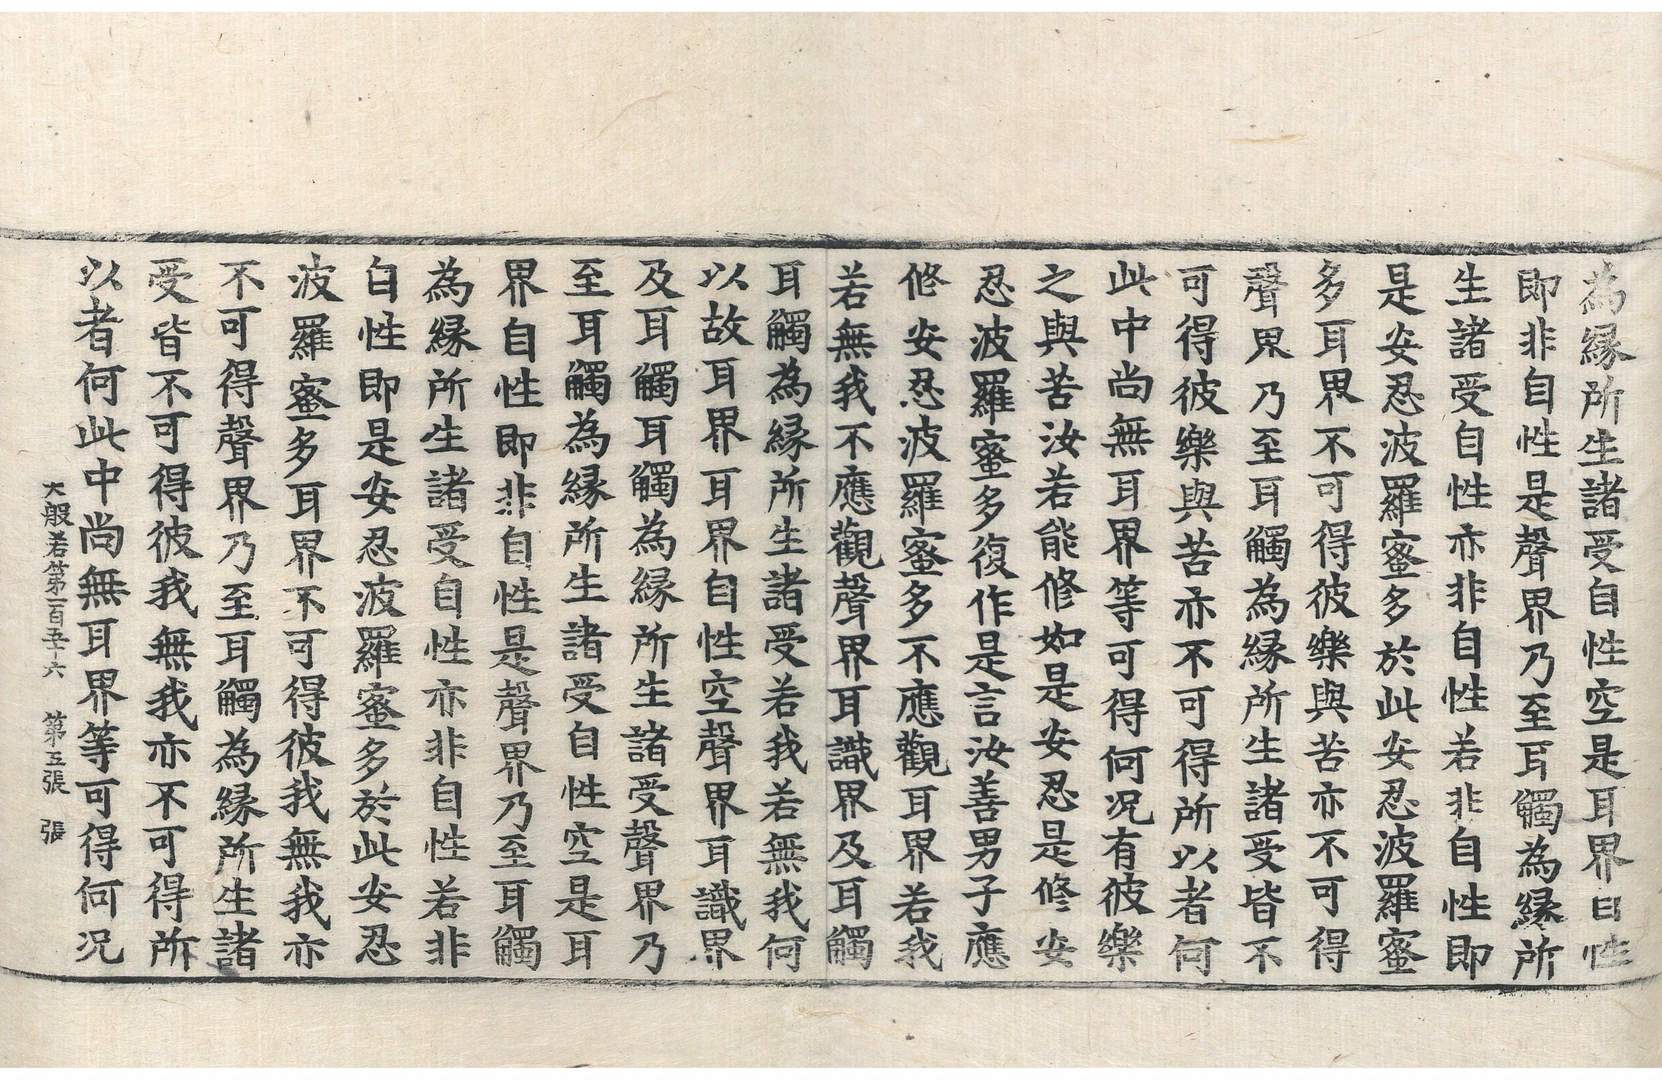 為緣所生諸受自性空是耳界自性
即非自性是聲界乃至耳觸為緣所
生諸受自性亦非自性若非自性即
是安忍波羅蜜多於此安忍波羅蜜
多耳界不可得彼樂與苦亦不可得
聲界乃至耳觸為緣所生諸受皆不
可得彼樂與苦亦不可得所以者何
此中尚無耳界等可得何況有彼樂
之與苦汝若能修如是安忍是修安
忍波羅蜜多復作是言汝善男子應
修安忍波羅蜜多不應觀耳界若我
若無我不應觀聲界耳識界及耳觸
耳觸為緣所生諸受若我若無我何
以故耳界耳界自性空聲界耳識界
及耳觸耳觸為緣所生諸受聲界乃
至耳觸為緣所生諸受自性空是耳
界自性即非自性是聲界乃至耳觸
為緣所生諸受自性亦非自性若非
自性即是安忍波羅蜜多於此安忍
波羅蜜多耳界不可得彼我無我亦
不可得聲界乃至耳觸為緣所生諸
受皆不可得彼我無我亦不可得所
以者何此中尚無耳界等可得何況
大般若第一百五十六 第五張 張